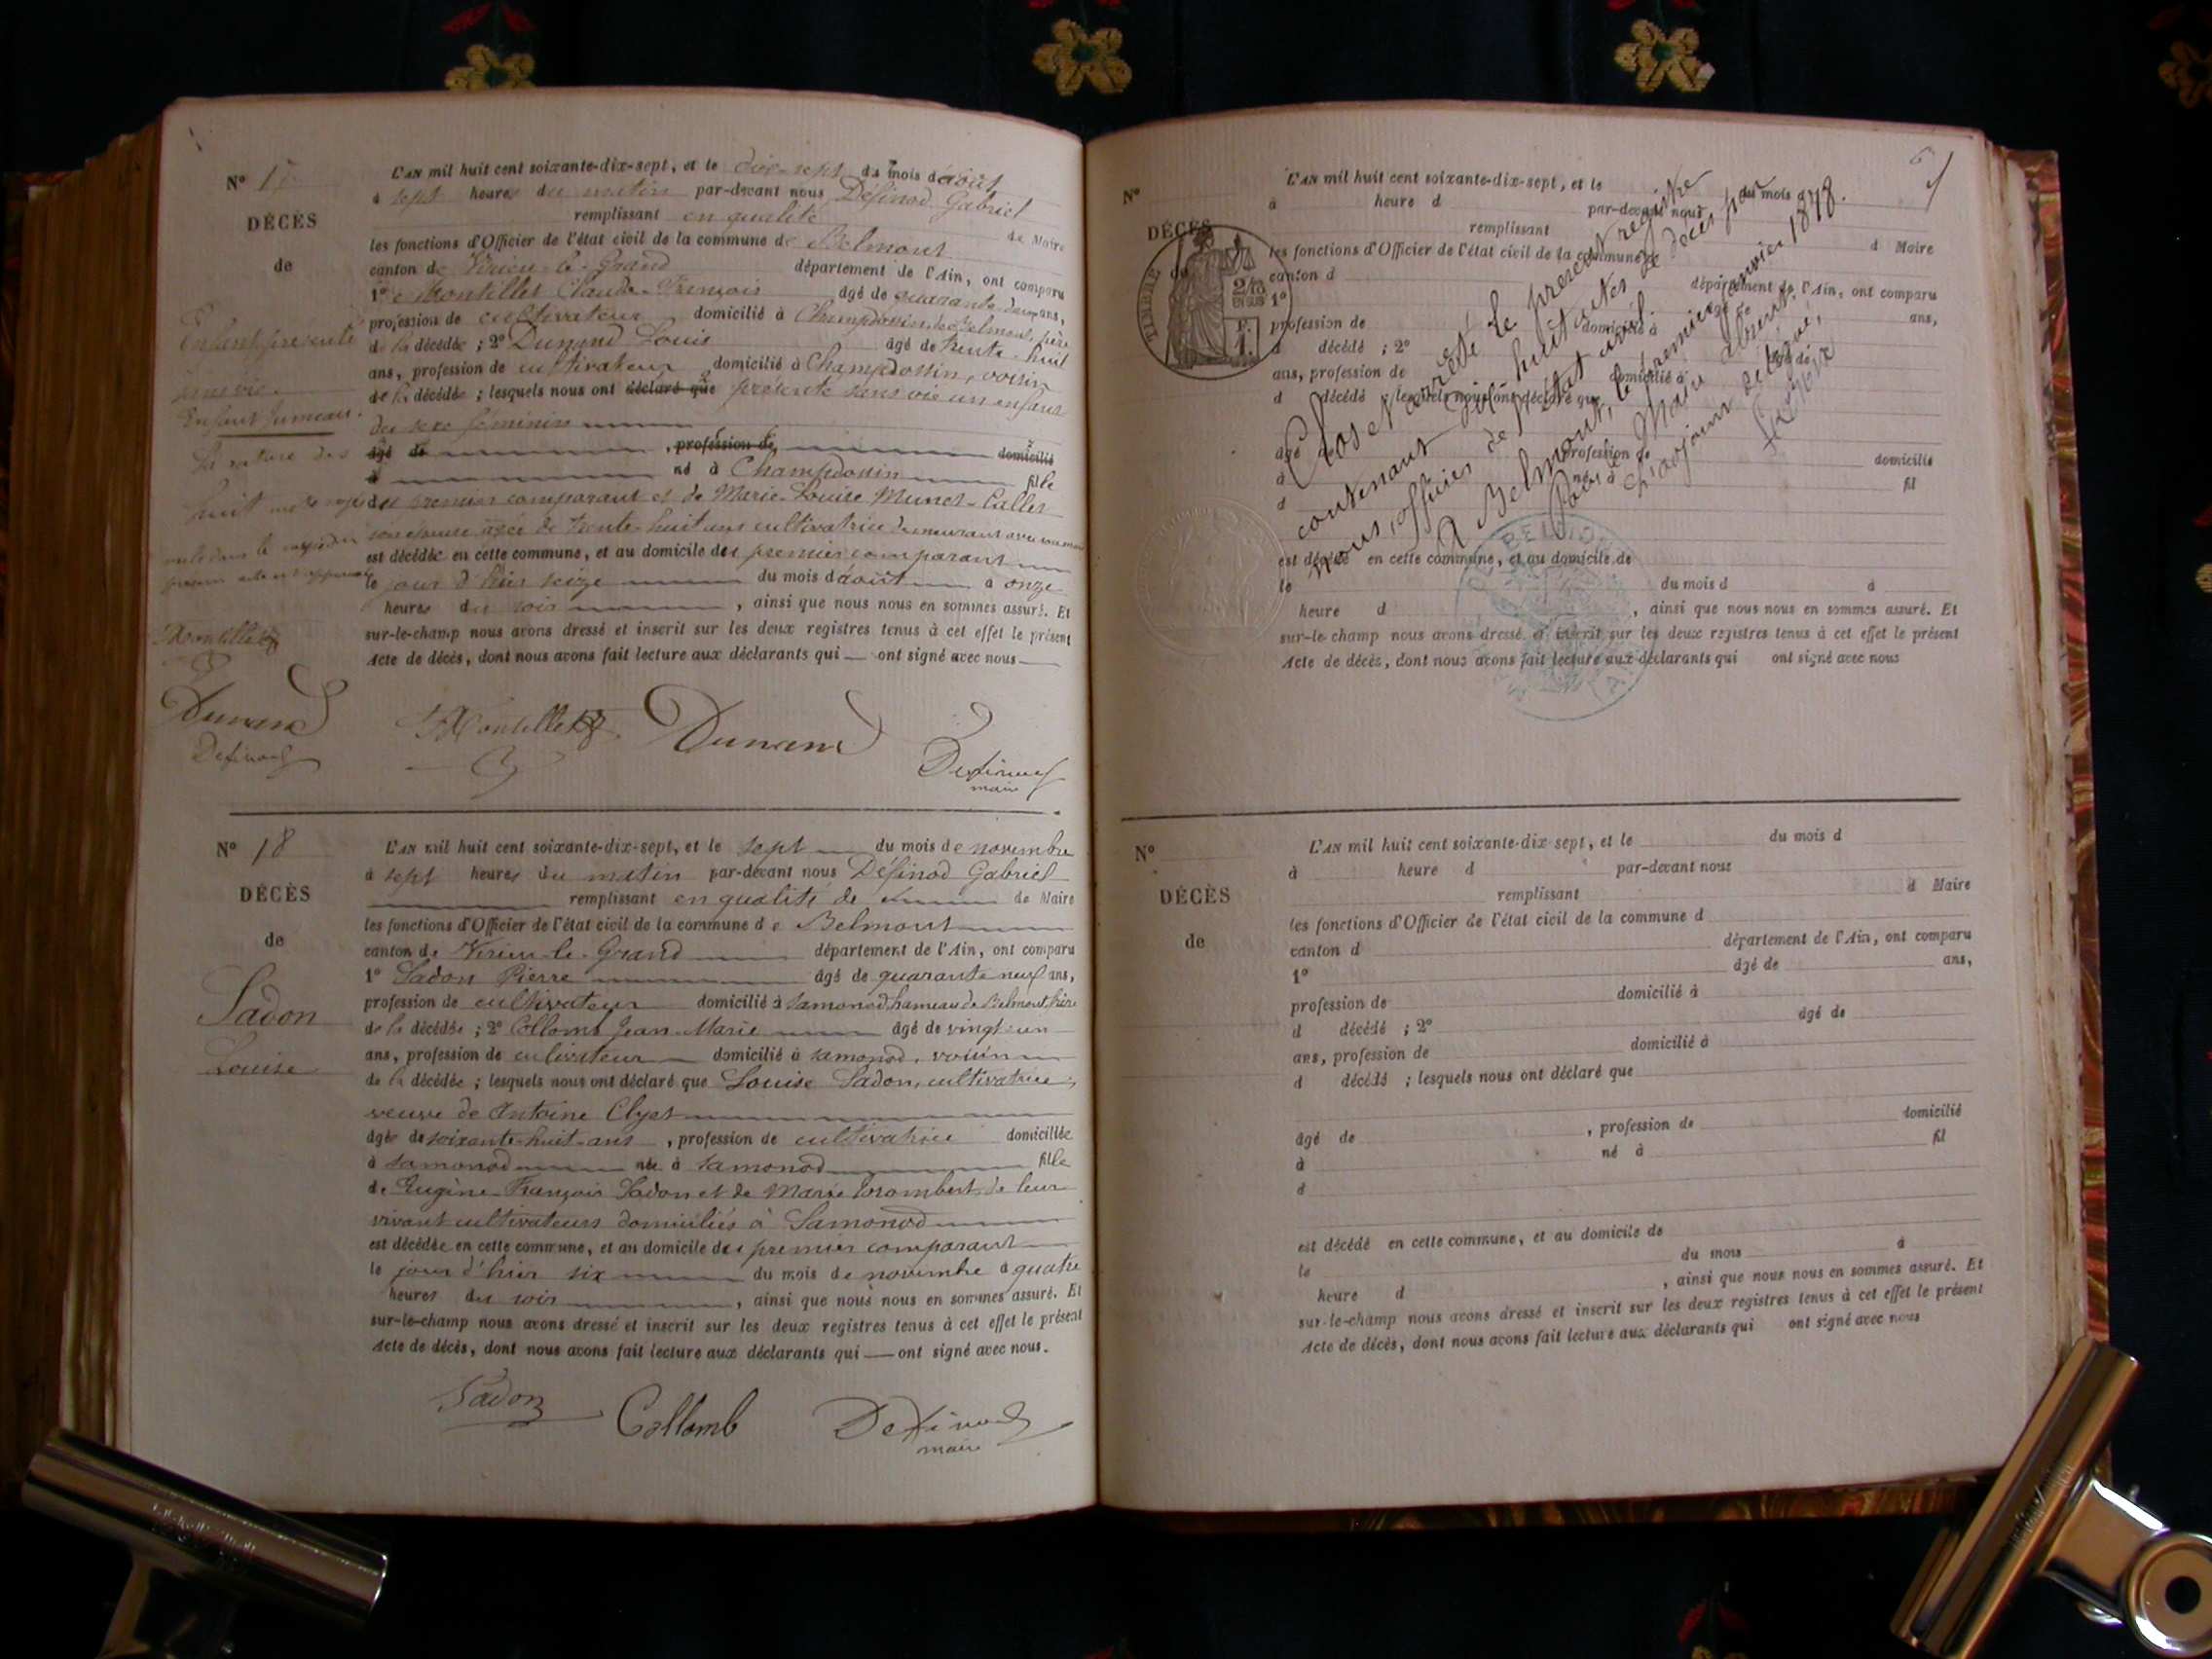 N° 17
DÉCÈS
de
Enfant présenté
sans vie
Enfant jumeau.
La rature des
huit mots rayés
Montillet
Dunand
Définod
L'AN mil huit cent soixante-dix-sept, et le dix-sept du mois d'août
à sept heures du matin par-devant nous Définod Gabriel
remplissant en qualité de Maire
les fonctions d'Officier de l'état civil de la commune de Belmont
canton de Virieu-le-Grand département de l'Ain, ont comparu
1° Montillet Claude-François âgé de quarante-deux ans,
profession de cultivateur domicilié à Champdossin, de Belmont, père
de la décédée ; 2° Dunand Louis âgé de trente-huit
ans, profession de cultivateur domicilié à Champdossin, voisin
de la décédée ; lesquels nous ont déclaré que présenté sans vie un enfant
du sexe féminin
âgé de , profession de domicilié
à né à Champdossin fille
du premier comparant et de Marie-Louise Munet-Callet
son épouse âgée de trente-huit ans cultivatrice demeurant avec son mari
est décédée en cette commune, et au domicile du premier comparant
le jour d'hier seize du mois d'août à onze
heures du soir , ainsi que nous nous en sommes assuré. Et
sur-le-champ nous avons dressé et inscrit sur les deux registres tenus à cet effet le présent
Acte de décès, dont nous avons fait lecture aux déclarants qui ont signé avec nous
Montillet Dunand Définod
maire
N° 18
DÉCÈS
de
Sadon
Louise
L'AN mil huit cent soixante-dix-sept, et le sept du mois de novembre
à sept heures du matin par-devant nous Définod Gabriel
remplissant en qualité de de Maire
les fonctions d'Officier de l'état civil de la commune de Belmont
canton de Virieu-le-Grand département de l'Ain, ont comparu
1° Sadon Pierre âgé de quarante neuf ans,
profession de cultivateur domicilié à Samonod hameau de Belmont, frère
de la décédée ; 2° Collomb Jean-Marie âgé de vingt-un
ans, profession de cultivateur domicilié à Samonod, voisin
de la décédée ; lesquels nous ont déclaré que Louise Sadon, cultivatrice,
veuve de Antoine Clyet
âgée de soixante-huit-ans , profession de cultivatrice domiciliée
à Samonod née à Samonod fille
de Eugène-François Sadon et de Marie Trombert de leur
vivant cultivateurs domiciliés à Samonod
est décédée en cette commune, et au domicile du premier comparant
le jour d'hier six du mois de novembre à quatre
heures du soir , ainsi que nous nous en sommes assuré. Et
sur-le-champ nous avons dressé et inscrit sur les deux registres tenus à cet effet le présent
Acte de décès, dont nous avons fait lecture aux déclarants qui ont signé avec nous.
Sadon Collomb Définod
maire
N°
DÉCÈS
de
TIMBRE
2/10
EN SUS
1 F.
L'AN mil huit cent soixante-dix-sept, et le du mois d
à heure d par-devant nous
remplissant d Maire
les fonctions d'Officier de l'état civil de la commune de
canton d département de l'Ain, ont comparu
1° âgé de ans,
profession de domicilié à
d décédé ; 2° âgé de
ans, profession de domicilié à
d décédé ; lesquels nous ont déclaré que
âgé de profession de domicilié
à né à fil
d
est décédé en cette commune, et au domicile de
le du mois d à
heure d , ainsi que nous nous en sommes assuré. Et
sur-le-champ nous avons dressé et inscrit sur les deux registres tenus à cet effet le présent
Acte de décès, dont nous avons fait lecture aux déclarants qui ont signé avec nous
Clos et arrêté le présent registre
contenant dix-huit actes de décès par
nous, officier de l'état civil.
A Belmont, le premier janvier 1878.
Pour le Maire absent.
L'adjoint délégué,
N°
DÉCÈS
de
L'AN mil huit cent soixante-dix sept, et le du mois d
à heure d par-devant nous
remplissant d Maire
les fonctions d'Officier de l'état civil de la commune d
canton d département de l'Ain, ont comparu
1° âgé de ans,
profession de domicilié à
d décédé ; 2° âgé de
ans, profession de domicilié à
d décédé ; lesquels nous ont déclaré que
âgé de , profession de domicilié
à né à fil
d
est décédé en cette commune, et au domicile de
le du mois à
heure d , ainsi que nous nous en sommes assuré. Et
sur-le-champ nous avons dressé et inscrit sur les deux registres tenus à cet effet le présent
Acte de décès, dont nous avons fait lecture aux déclarants qui ont signé avec nous